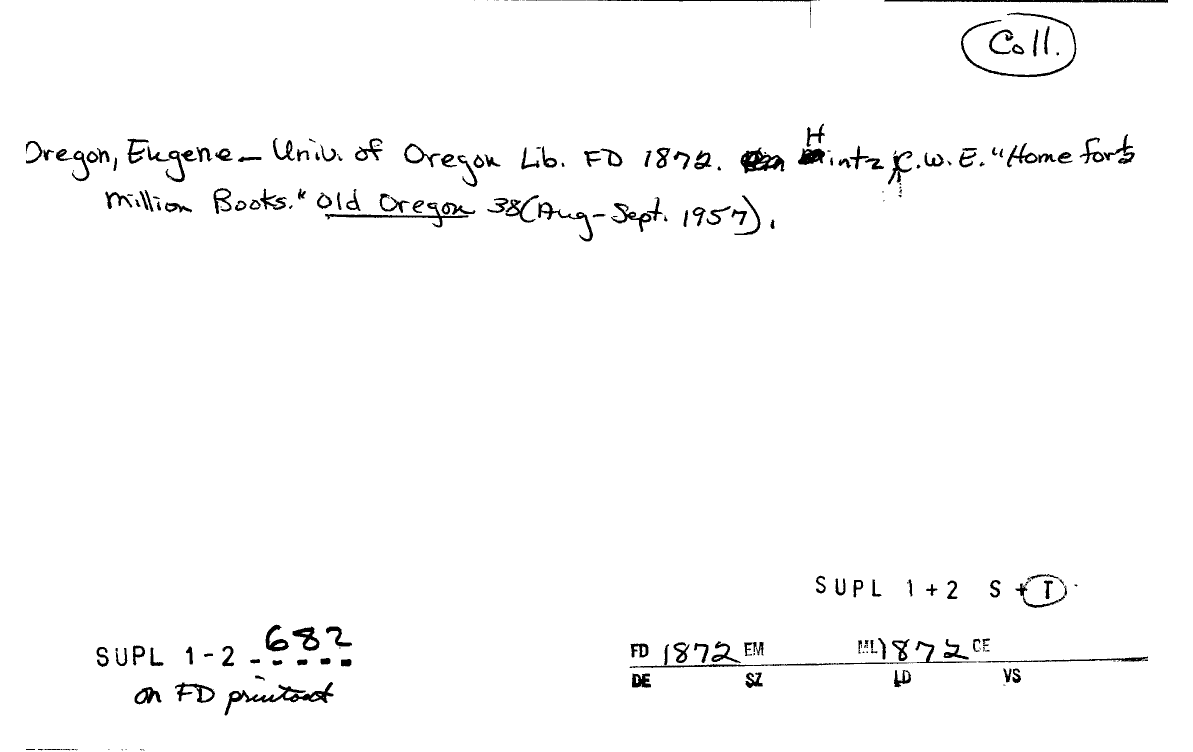 Coll.
Oregon, Eugene — Univ. of Oregon Lib. FD 1872. Hintz, C.W.E. "Home for
Million Books." Old Oregon 38 (Aug-Sept. 1957).
SUPL 1+2 S + T
SUPL 1-2 682
on FD printout
FD 1872 EM ML 1872 CE
DE SZ LD VS